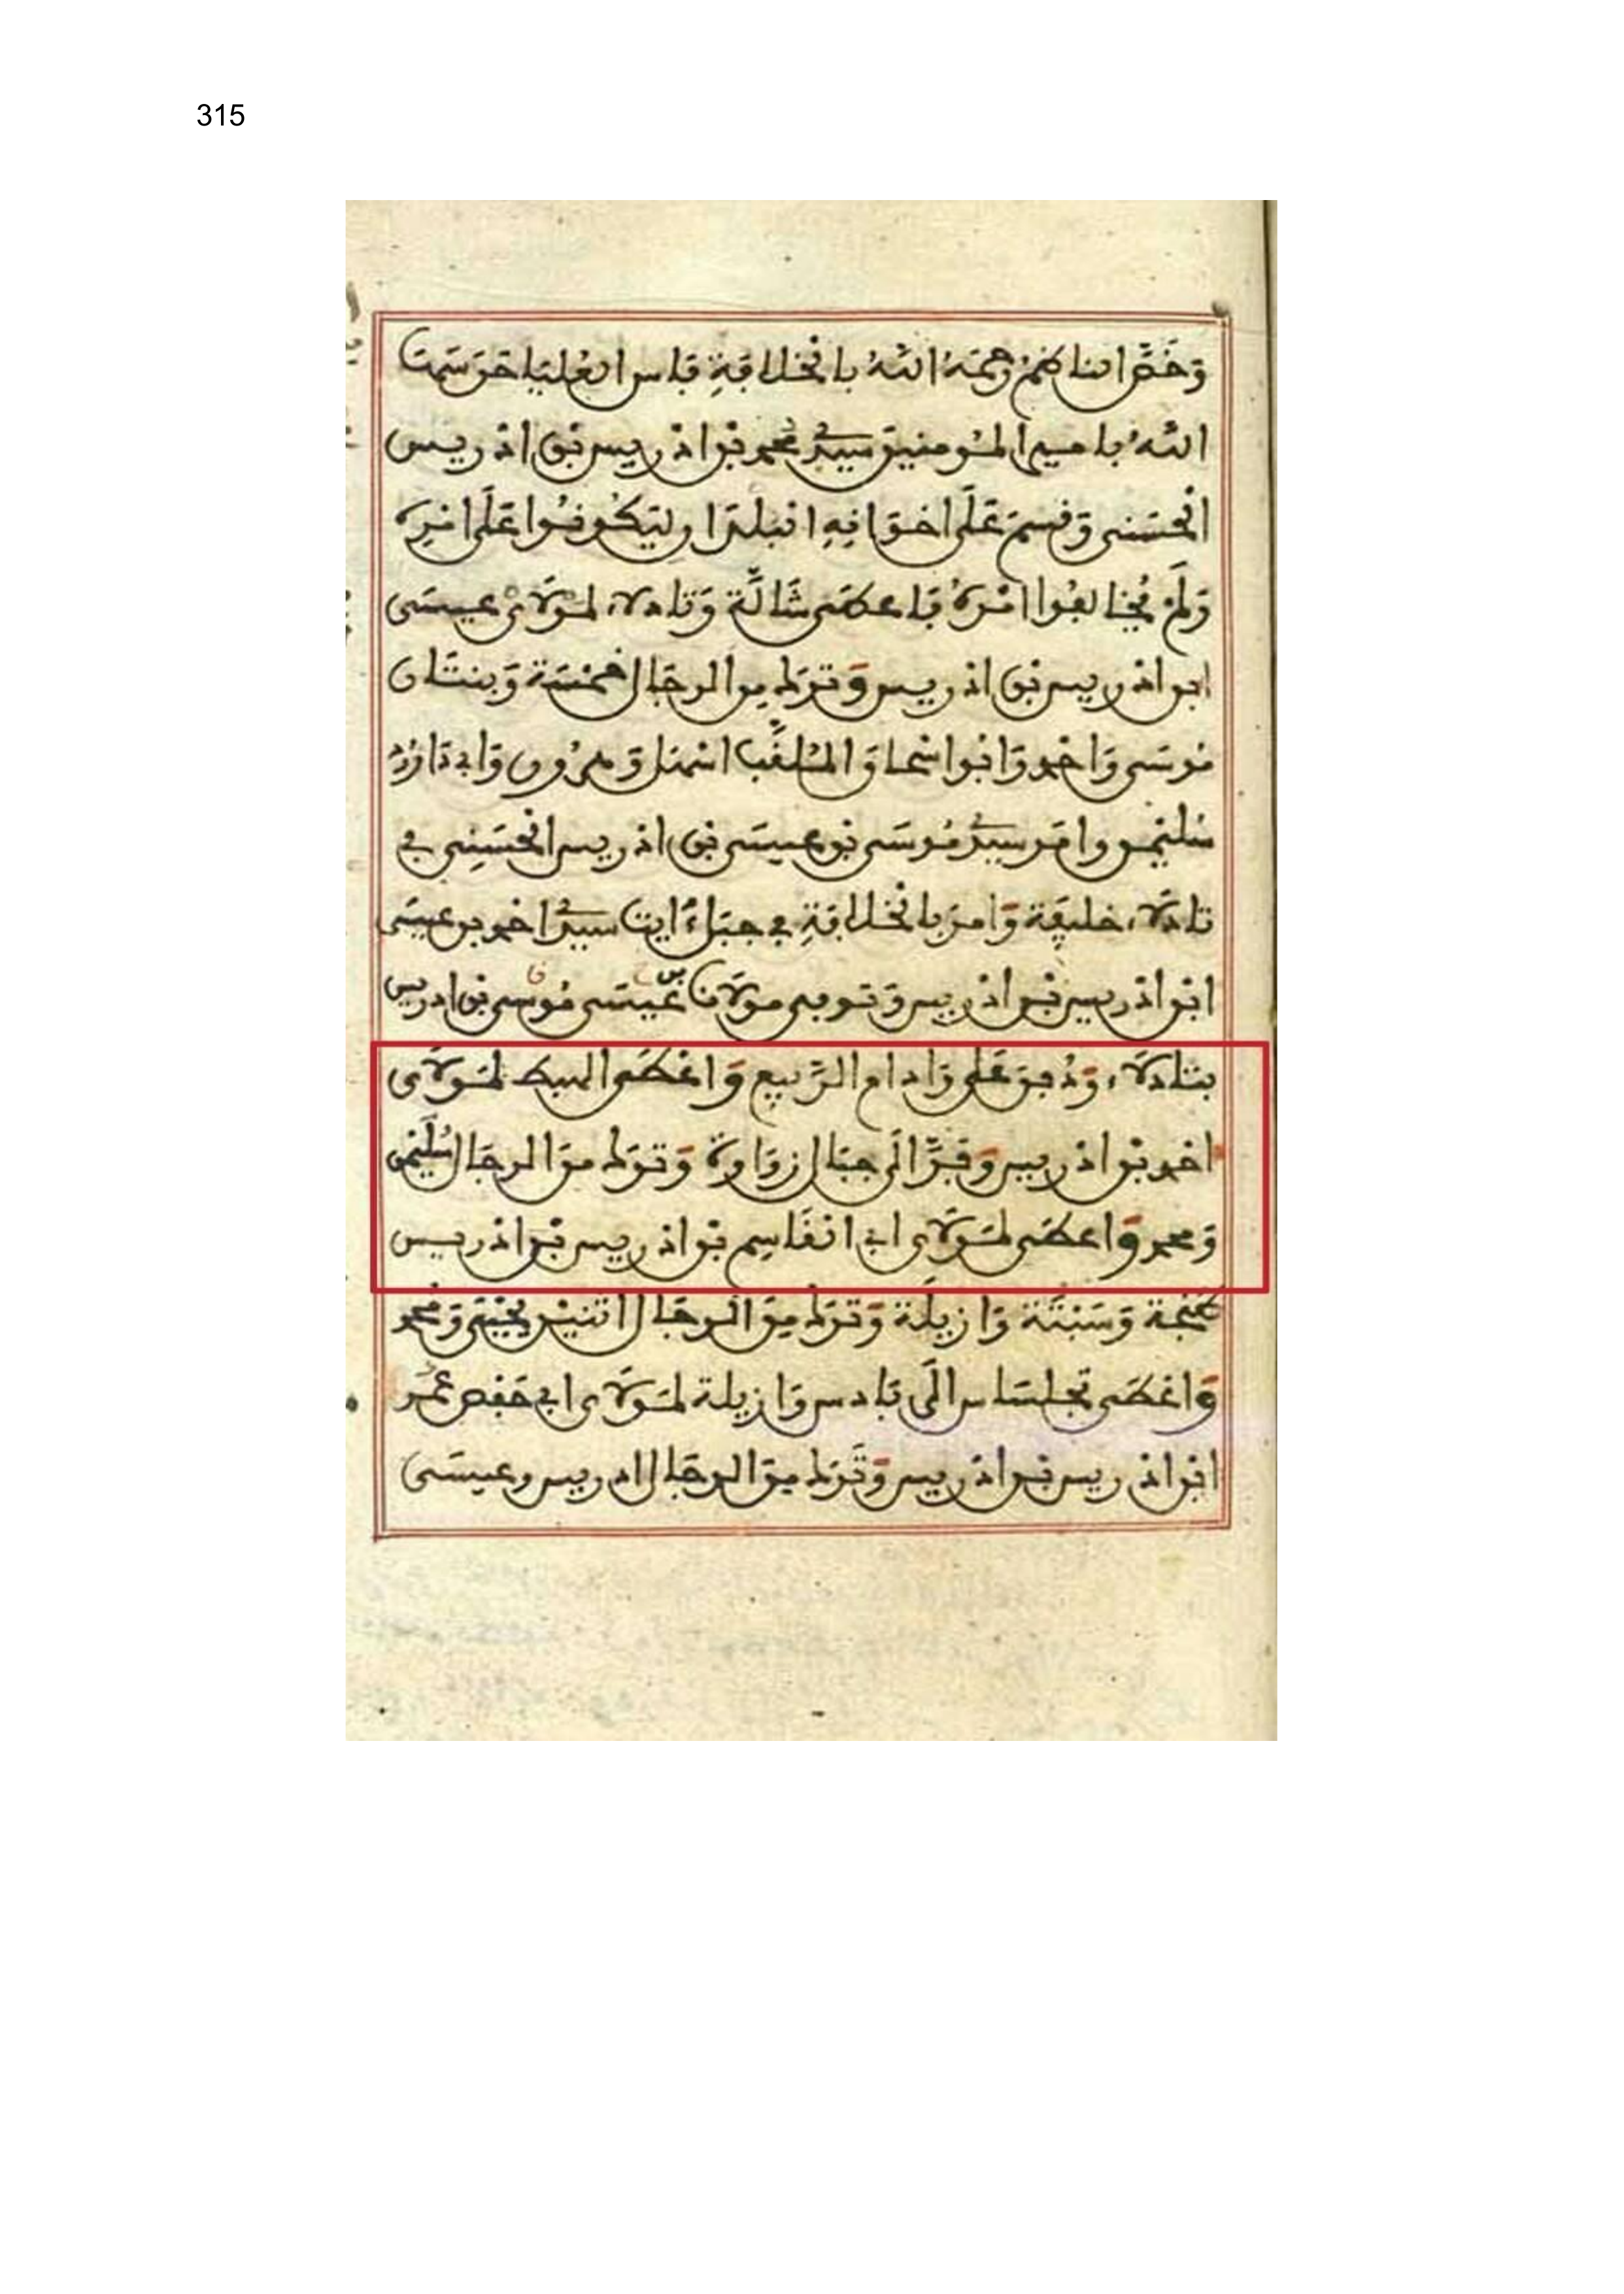 315
وَخَصَّ ابنا كم رحمه الله بالخلافة فاس العليا حرست
الله بامير المومنين سيد محمد بن ادريس بن ادريس
الحسنى وقسم على اخوانه البلدا وليكونوا على امره
ولم يخالفوا امره فاعطى شالة وتادلاء لمولاى عيسى
ابن ادريس بن ادريس وترك من الرجال خمسة وبنتان
موسى واحمد وابوا اسحاو الملقب وهرون وابى داوود
سليمن سيد موسى بن عيسى بن ادريس الحسنى في
تادلاء خليفة وامر بالخلافة في جبل ايت احمد بن عيسى
ابن ادريس بن ادريس وتوبى مولانا عيسى بن موسى بن ادريس
بتادلاء ودفن على واد ام الربيع واعطى لمولاى
احمد بن ادريس وفرّ الى جبال زواوة وترك من الرجال سليمن
ومحمد واعطى لمولاى ابى القاسم بن ادريس بن ادريس
طنجة وسبتة وازيلة وترك من الرجال اثنين يحيى ومحمد
واعطى تجلساس الى بادس وازيلة لمولاى ابى حفص عمر
ابن ادريس بن ادريس وترك من الرجال ادريس وعيسى